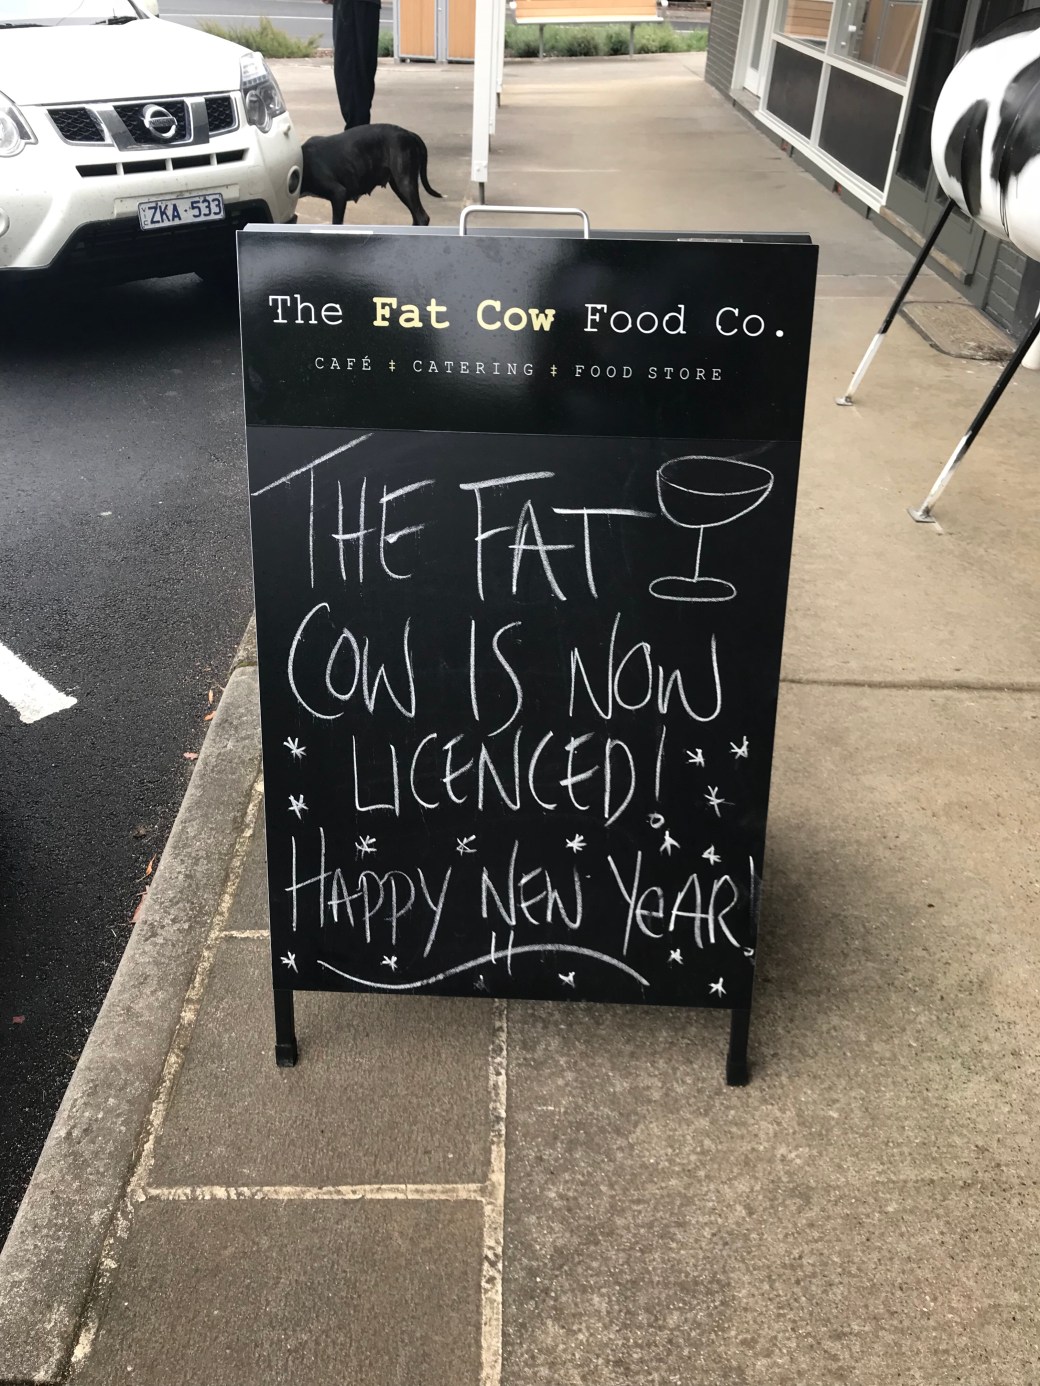 ZKA·533
The Fat Cow Food Co.
CAFÉ ‡ CATERING ‡ FOOD STORE
THE FAT
COW IS NOW
LICENCED!
HAPPY NEW YeAR!